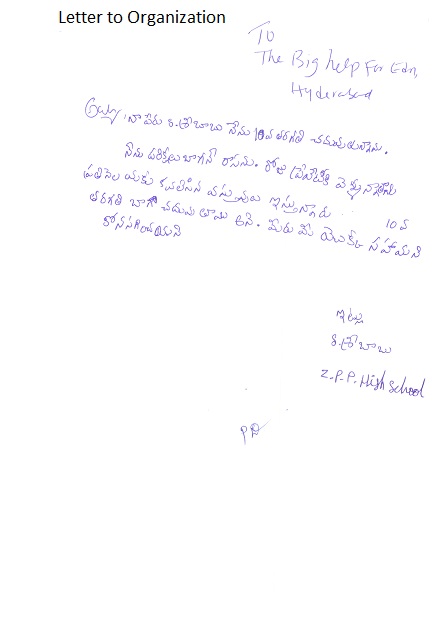 Letter to Organization
To
The Big help For Edn,
Hyderabad
నా పేరు ర.శోబాబు నేను 10వ తరగతి చదువుతున్నాను.
నేను పరిక్షలు బాగానే రాసను. రోజు
ప్రతినెల మాకు కావలసిన వస్తువులు ఇస్తున్నారు 10వ
తరగతి బాగా చదువుతాము అని. మీరు మీ యొక్క సహాయని
కోనసాగించాయని
ఇట్లు
ర.శోబాబు
Z.P.P. High School